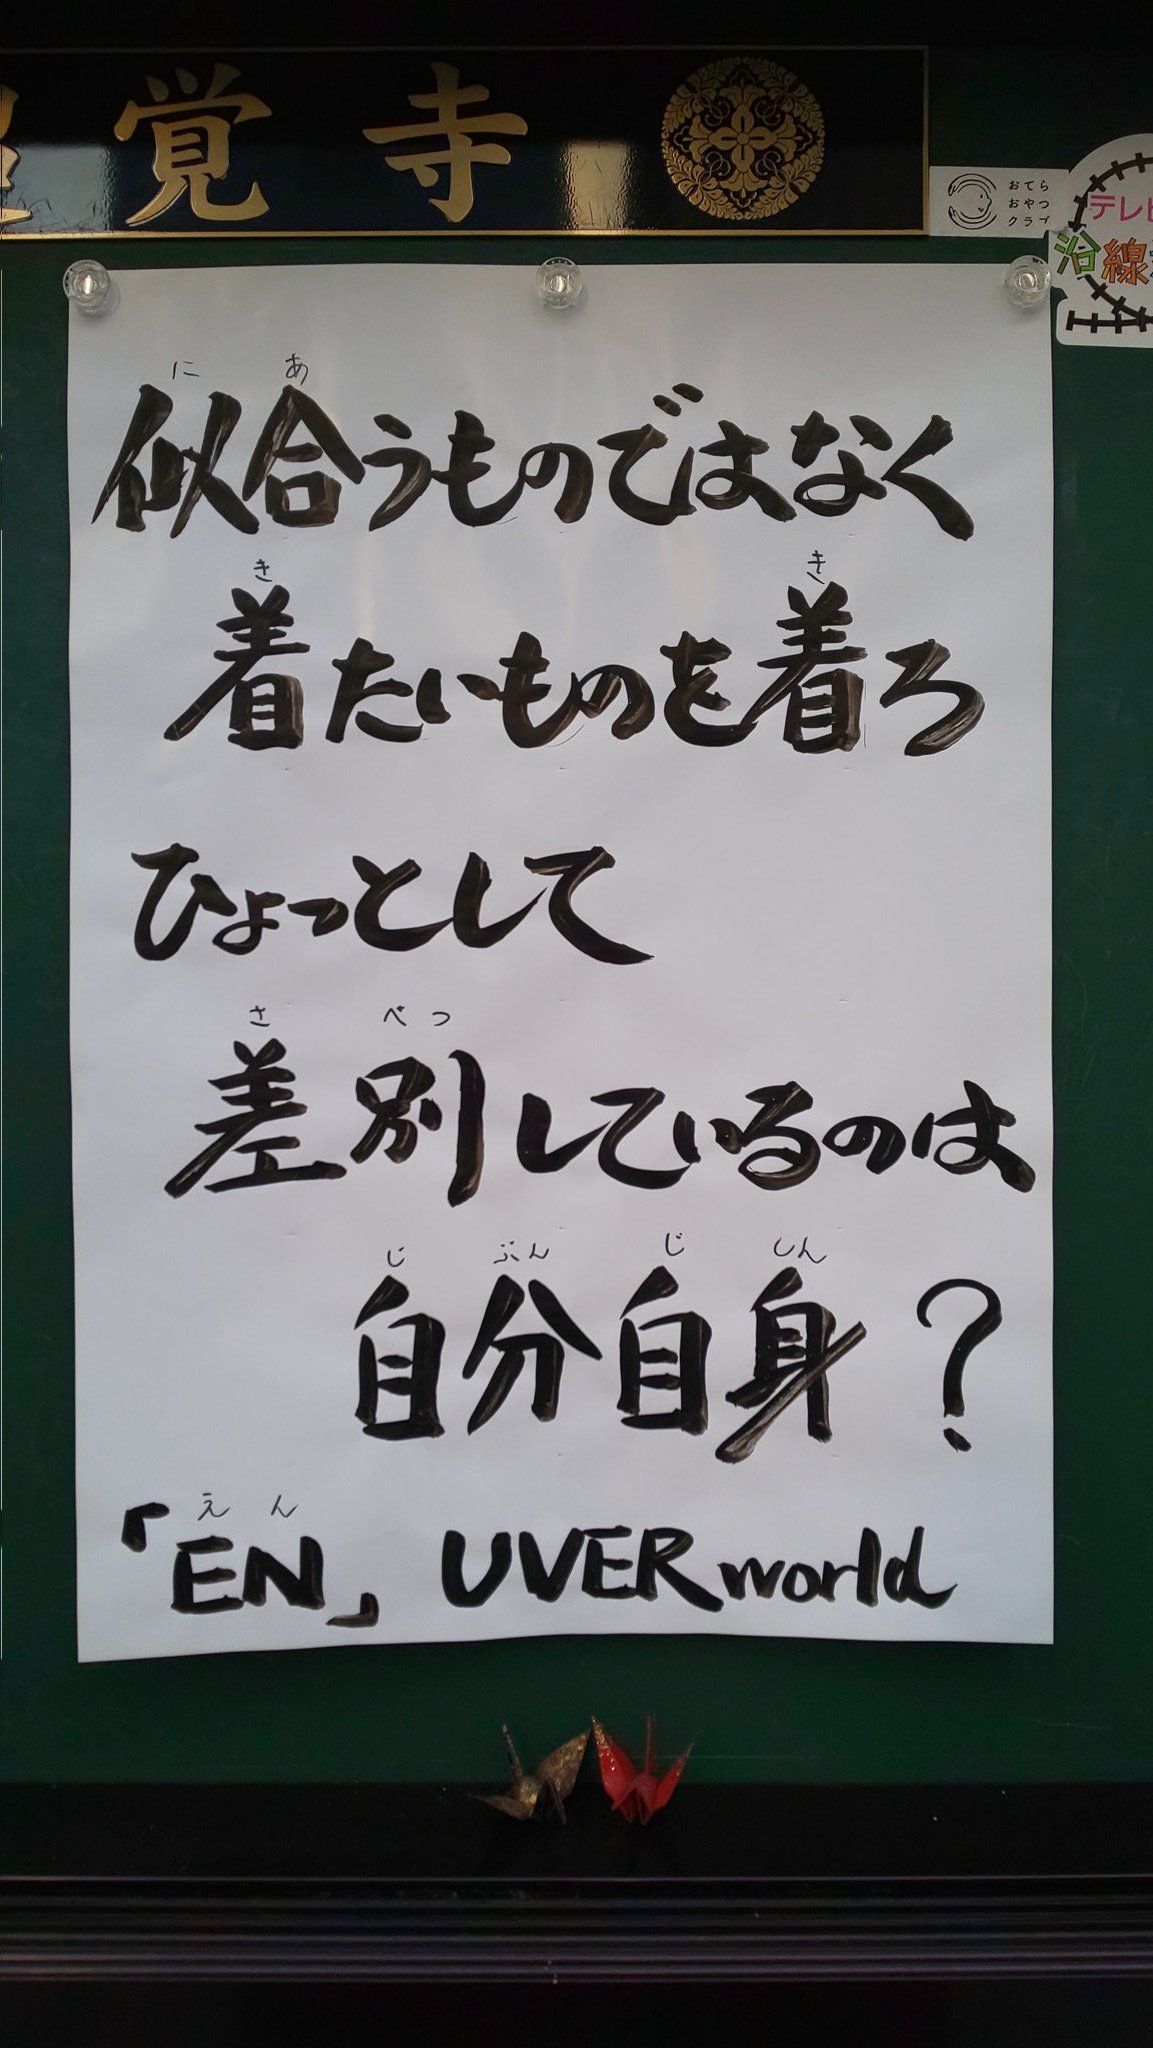 覚寺
おてら
おやつ
クラブ
テレビ
沿線
に あ
似合うものではなく
き き
着たいものを着ろ
ひょっとして
さ べつ
差別しているのは
じ ぶん じ しん
自分自身?
えん
「EN」 UVERworld